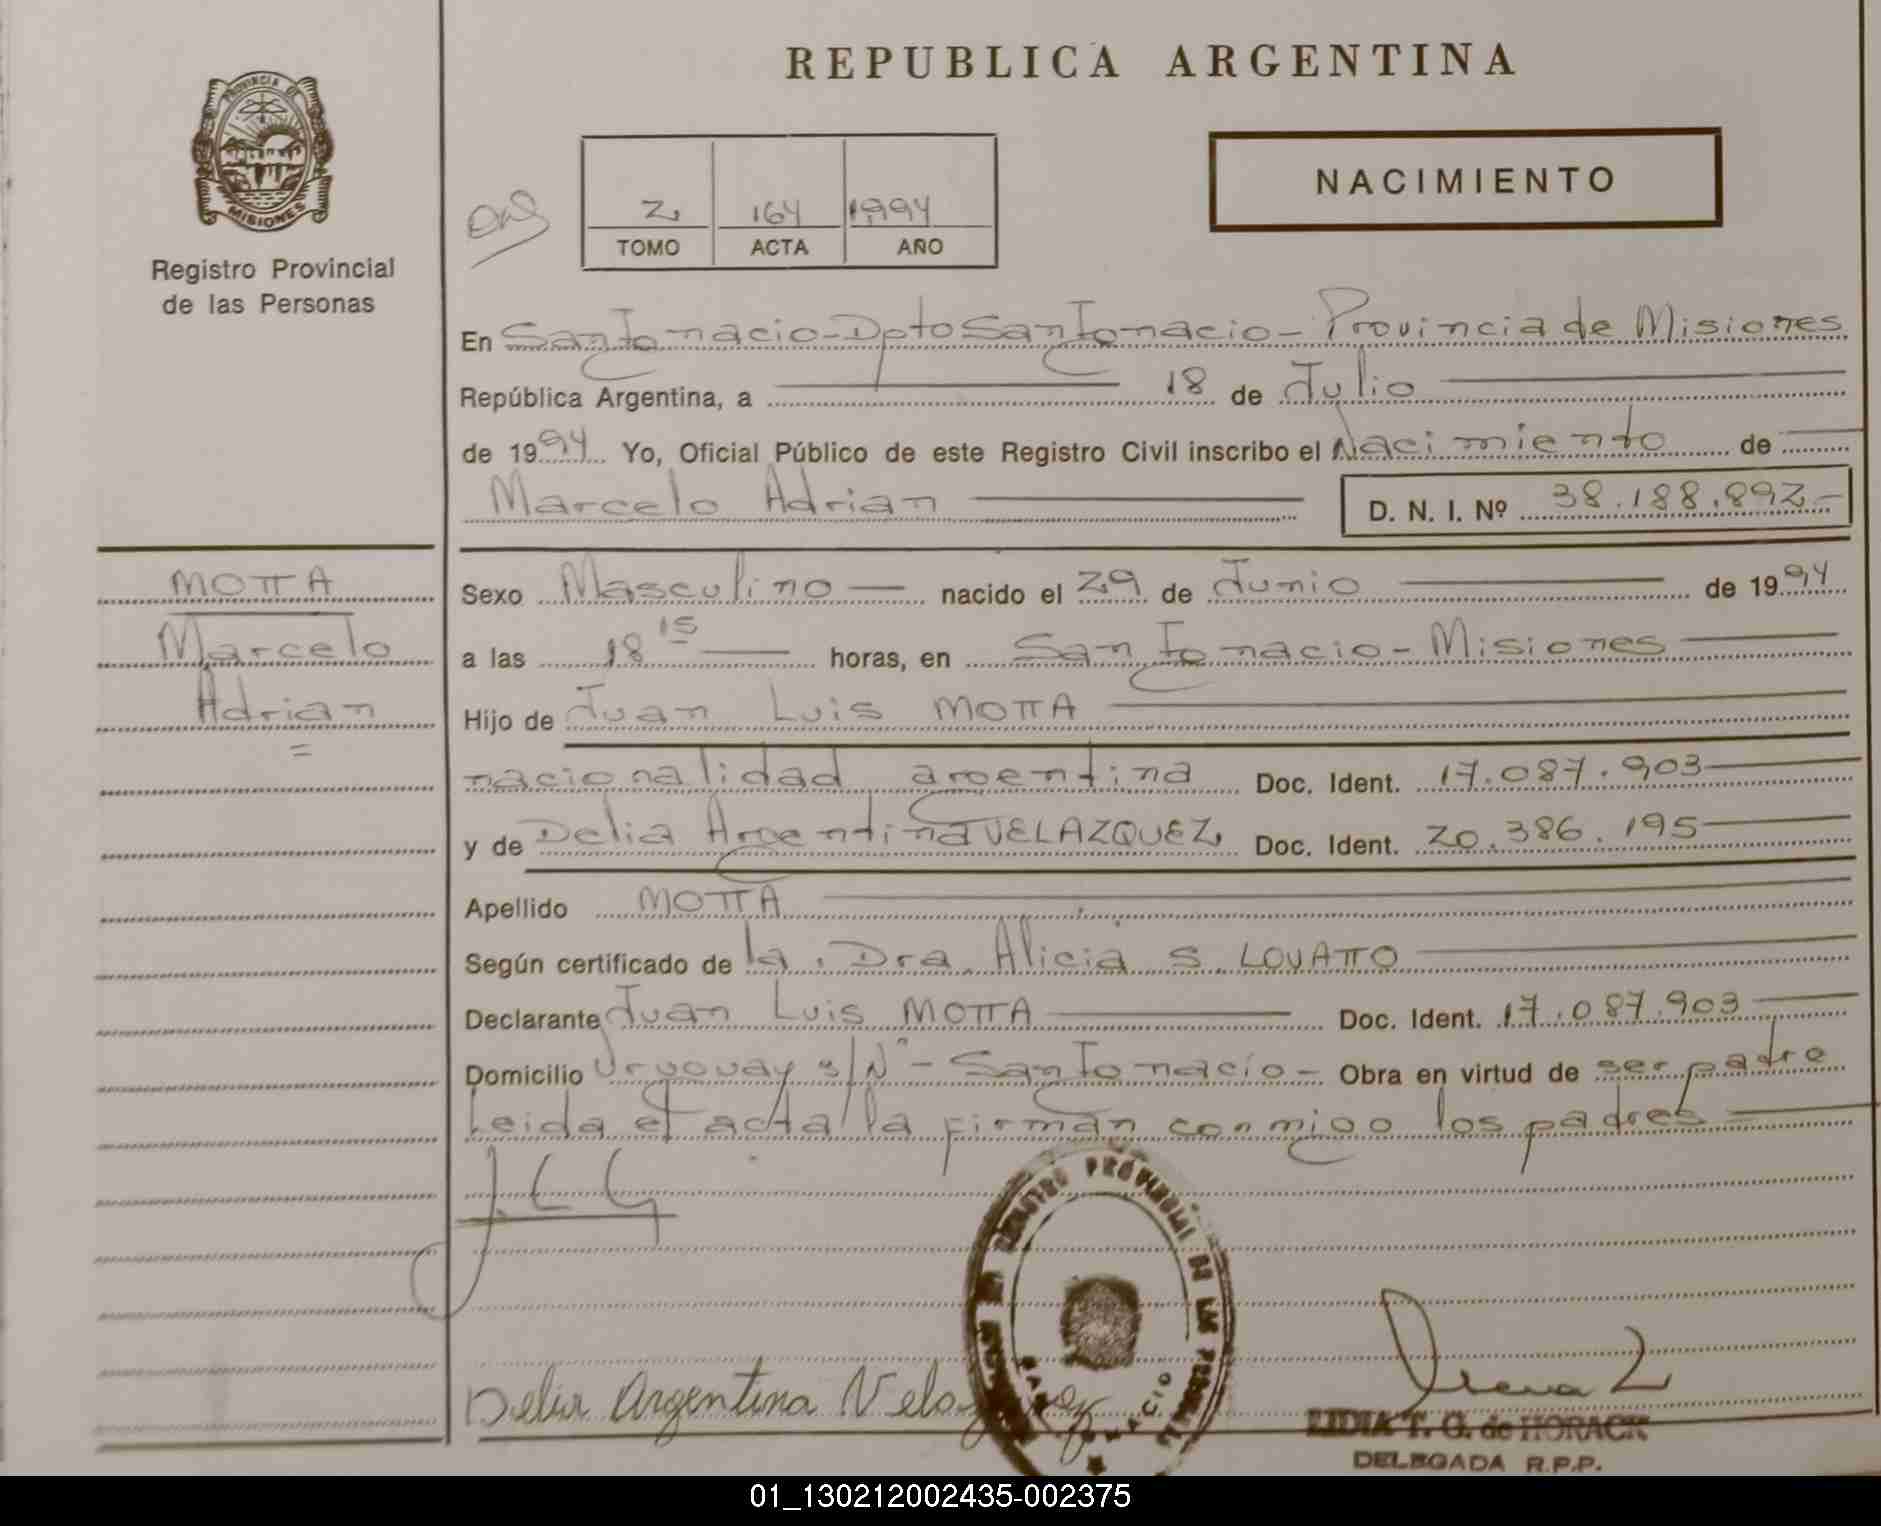 REPUBLICA ARGENTINA
PROVINCIA DE
MISIONES
Registro Provincial
de las Personas
NACIMIENTO
2 164 1994
TOMO ACTA AÑO
En San Ignacio - Dpto San Ignacio - Provincia de Misiones
República Argentina, a 18 de Julio
de 1994 Yo, Oficial Público de este Registro Civil inscribo el Nacimiento de
Marcelo Adrian D. N. I. Nº 38.188.892-
MOTTA
Marcelo
Adrian
=
Sexo Masculino nacido el 29 de Junio de 1994
a las 18 15 horas, en San Ignacio - Misiones
Hijo de Juan Luis MOTTA
nacionalidad argentina Doc. Ident. 17.087.903
y de Delia Argentina VELAZQUEZ Doc. Ident. 20.386.195
Apellido MOTTA
Según certificado de la . Dra. Alicia S. LOVATTO
Declarante Juan Luis MOTTA Doc. Ident. 17.087.903
Domicilio Uruguay s/Nº - San Ignacio - Obra en virtud de ser padre
Leida el acta la firman conmigo los padres
REGISTRO PROVINCIAL DE LAS PERSONAS
Delia Argentina Velazquez
LIDIA T. G. de HORACK
DELEGADA R.P.P.
01_130212002435-002375